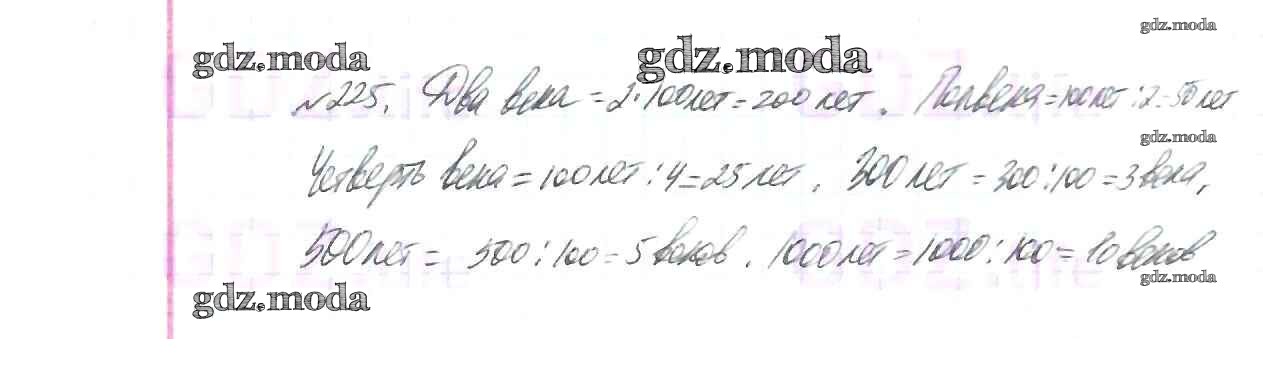 gdz.moda
gdz.moda gdz.moda
№225. Два века = 2·100лет = 200 лет. Полвека = 100лет : 2 = 50 лет
gdz.moda
Четверть века = 100лет : 4 = 25 лет. 300лет = 300:100 = 3 века,
500лет = 500:100 = 5 веков. 1000лет = 1000:100 = 10 веков
gdz.moda
gdz.moda